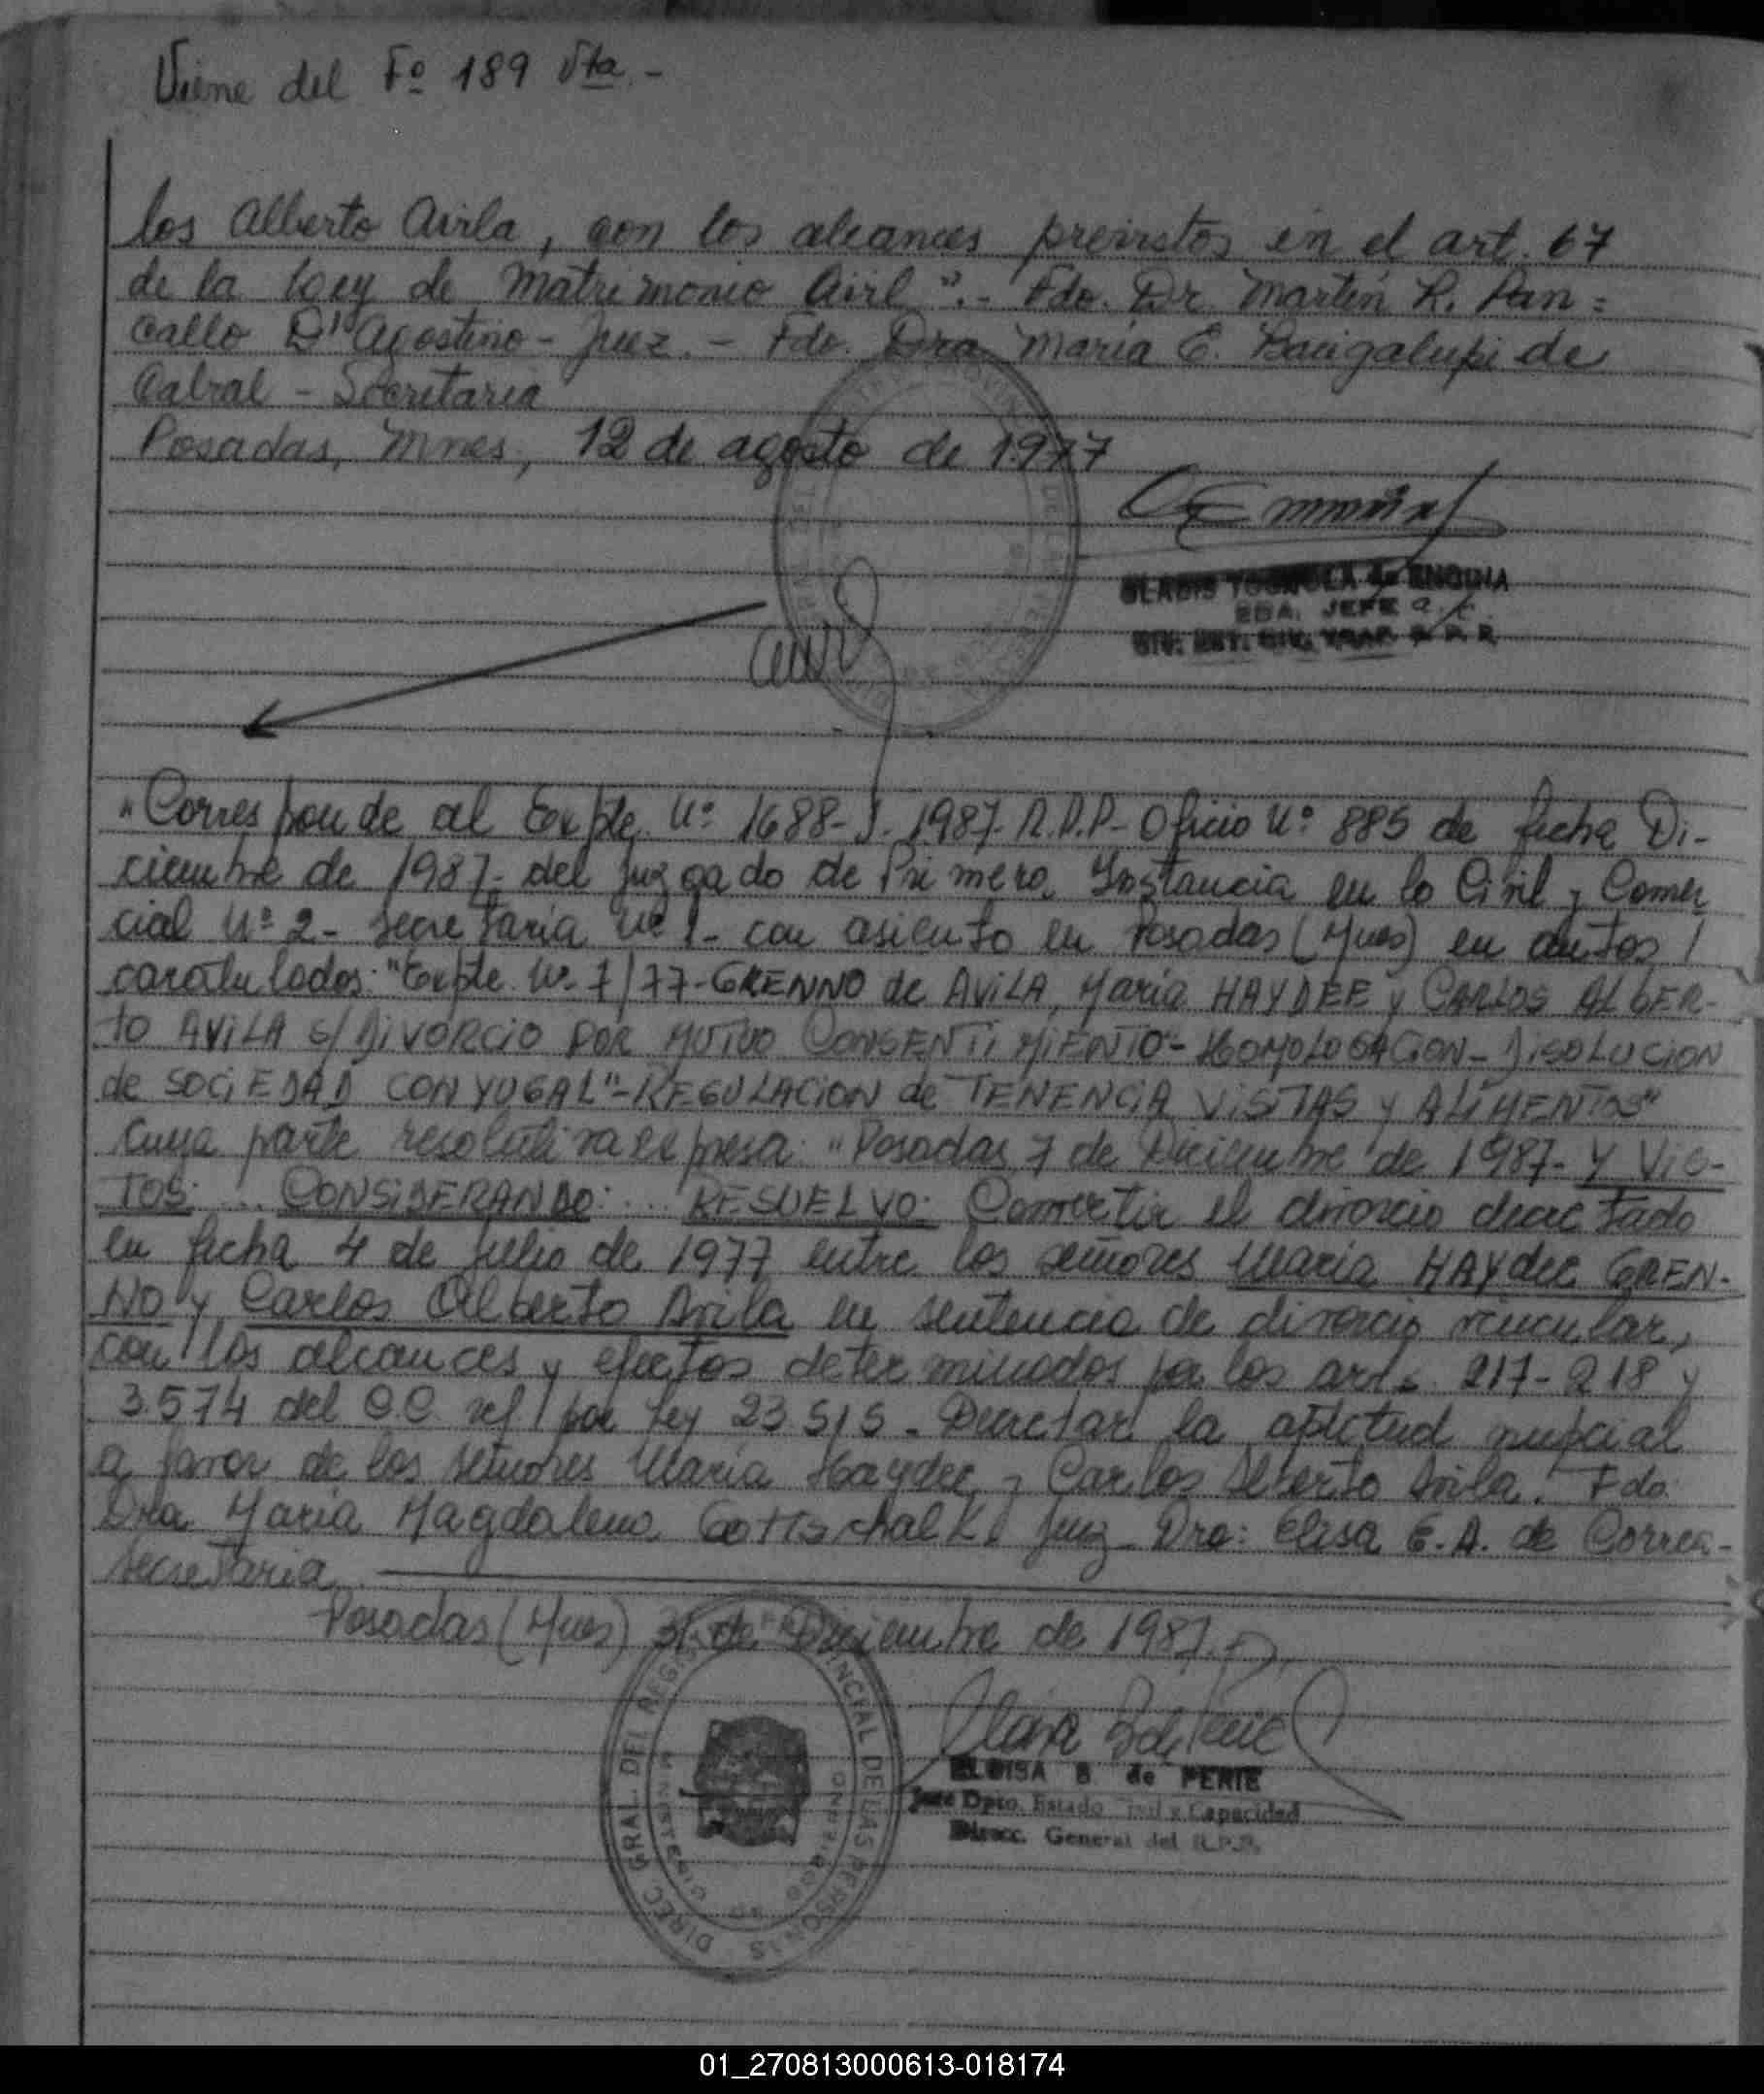 Viene del Fº 189 Vta.-
los Alberto Avila, con los alcances previstos en el art. 67
de la Ley de Matrimonio Civil".- Fdo. Dr. Martín R. Pan=
callo D'Agostino - Juez. - Fdo. Dra María E. Bacigalupi de
Cabral - Secretaria
Posadas, Mnes, 12 de agosto de 1977
GLADIS TOGNOLA de ENCINA
2DA. JEFE a.
"Corresponde al Expte. Nº 1688-J. 1987-R.P.P- Oficio Nº 885 de fecha Di-
ciembre de 1987- del Juzgado de Primera Instancia en lo Civil y Comer
cial Nº 2- Secretaría Nº 1- con asiento en Posadas (Mnes) en autos /
caratulados: "Expte. Nº 7/77-GRENNO de AVILA, María HAYDEE y CARLOS ALBER-
TO AVILA s/DIVORCIO POR MUTUO CONSENTIMIENTO"- HOMOLOGACION- DISOLUCION
de SOCIEDAD CONYUGAL"-REGULACION de TENENCIA VISITAS y ALIMENTOS"
cuya parte resolutiva expresa: "Posadas, 7 de Diciembre de 1987- Y VIS-
TOS: ... CONSIDERANDO: ... RESUELVO: Convertir el divorcio decretado
en fecha 4 de julio de 1977 entre los señores María HAYdee GREN-
NO y Carlos Alberto Avila en sentencia de divorcio vincular,
con los alcances y efectos determinados por los arts. 217-218 y
3.574 del C.C. ref. por Ley 23.515 - Decretar la aptitud nupcial
a favor de los señores María Haydee y Carlos Alberto Avila. Fdo.
Dra María Magdalena Gottschalk Juez- Dra: Elisa E.A. de Correa-
Secretaria
Posadas (Mnes) 31 de Diciembre de 1987.
DIREC. GRAL. DEL REGISTRO PROVINCIAL DE LAS PERSONAS
MINISTERIO DE GOBIERNO
ELOISA B. de PERIE
Jefe Dpto. Estado Civil y Capacidad
Direcc. General del R.P.P.
01_270813000613-018174